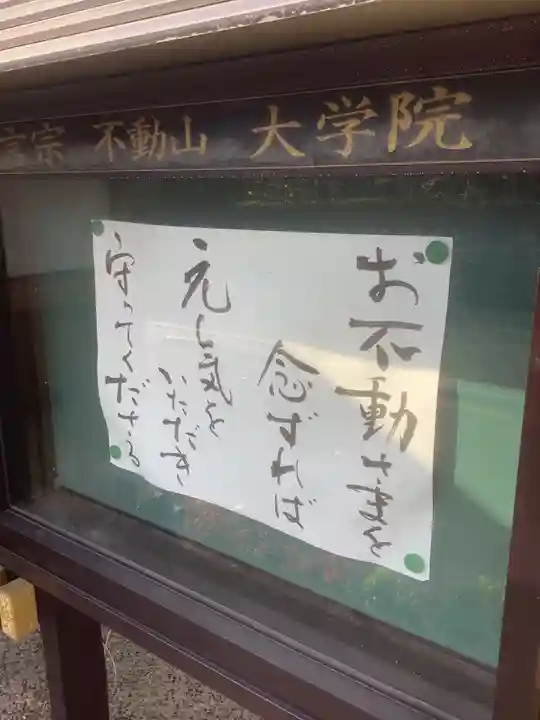 言宗 不動山 大学院
お不動さまを
念ずれば
元気を
いただき
守ってくださる